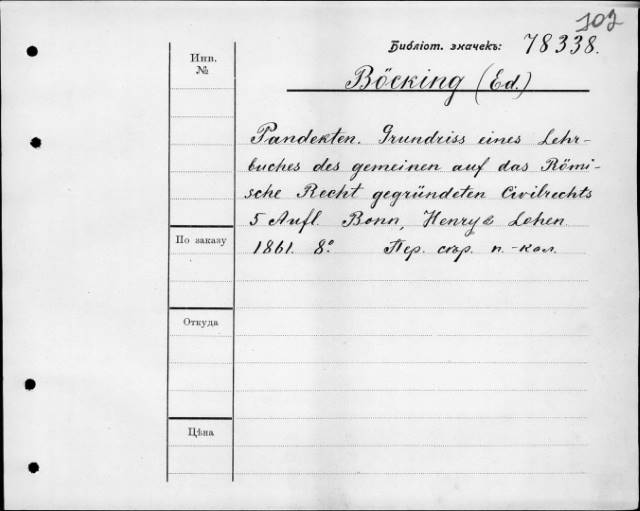 102
Библіот. значекъ: 78338.
Инв.
№
Böcking (Ed.)
Pandekten. Grundriss eines Lehr-
buches des gemeinen auf das Römi-
sche Recht gegründeten Civilrechts
5 Aufl. Bonn, Henry & Cohen.
1861. 8º. Пер. стр. п.-кол.
По заказу
Откуда
Цѣна